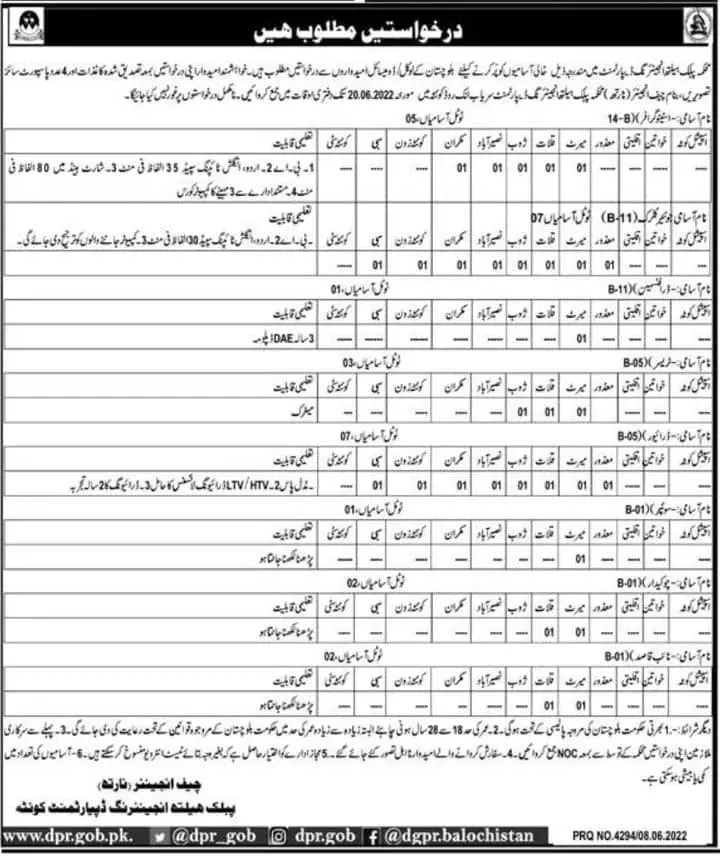 درخواستیں مطلوب ہیں
محکمہ پبلک ہیلتھ انجینئرنگ ڈیپارٹمنٹ میں مندرجہ ذیل خالی آسامیوں کو پُر کرنے کیلئے بلوچستان کے لوکل / ڈومیسائل امیدواروں سے درخواستیں مطلوب ہیں۔ خواہشمند امیدوار اپنی درخواستیں بمعہ تصدیق شدہ کاغذات اور 4 عدد پاسپورٹ سائز
تصویریں، بنام چیف انجینئر (نارتھ) محکمہ پبلک ہیلتھ انجینئرنگ ڈیپارٹمنٹ سریاب لنک روڈ کوئٹہ میں مورخہ 20.06.2022 تک دفتری اوقات میں جمع کروائیں۔ نامکمل درخواستوں پر غور نہیں کیا جائیگا۔
نام آسامی:- اسٹینوگرافر (B-14) ٹوٹل آسامیاں، 05
اسپیشل کوٹہ خواتین اقلیتی معذور میرٹ قلات ژوب نصیر آباد مکران کوئٹہ زون سبی کوئٹہ سٹی تعلیمی قابلیت
---- ---- ---- ---- 01 01 01 01 01 ---- ---- ---- 1۔ بی۔اے 2۔ اردو، انگلش ٹائپنگ سپیڈ 35 الفاظ فی منٹ 3۔ شارٹ ہینڈ میں 80 الفاظ فی
منٹ 4۔ مستند ادارے سے 3 مہینے کا کمپیوٹر کورس
نام آسامی جونیئر کلرک (B-11) ٹوٹل آسامیاں 07 تعلیمی قابلیت
اسپیشل کوٹہ خواتین اقلیتی معذور میرٹ قلات ژوب نصیر آباد مکران کوئٹہ زون سبی کوئٹہ سٹی ۔بی۔اے 2۔ اردو، انگلش ٹائپنگ سپیڈ 30 الفاظ فی منٹ 3۔ کمپیوٹر جاننے والوں کو ترجیح دی جائے گی۔
---- ---- ---- 01 01 01 01 01 01 01 01 ----
نام آسامی:- ڈرافٹسمین (B-11) ٹوٹل آسامیاں، 01
اسپیشل کوٹہ خواتین اقلیتی معذور میرٹ قلات ژوب نصیر آباد مکران کوئٹہ زون سبی کوئٹہ سٹی تعلیمی قابلیت
---- ---- ---- ---- 01 ---- ---- ---- ---- ---- ---- ---- 3 سالہ DAE ڈپلومہ
نام آسامی:- ٹریسر (B-05) ٹوٹل آسامیاں، 03
اسپیشل کوٹہ خواتین اقلیتی معذور میرٹ قلات ژوب نصیر آباد مکران کوئٹہ زون سبی کوئٹہ سٹی تعلیمی قابلیت
---- ---- ---- ---- 01 01 01 ---- ---- ---- ---- ---- میٹرک
نام آسامی:- ڈرائیور (B-05) ٹوٹل آسامیاں، 07
اسپیشل کوٹہ خواتین اقلیتی معذور میرٹ قلات ژوب نصیر آباد مکران کوئٹہ زون سبی کوئٹہ سٹی تعلیمی قابلیت
---- ---- ---- 01 01 01 01 01 01 01 ---- ---- ۔ مڈل پاس 2۔ LTV/HTV ڈرائیونگ لائسنس کا حامل 3۔ ڈرائیونگ کا 2 سالہ تجربہ
نام آسامی:- سوئپر (B-01) ٹوٹل آسامیاں، 01
اسپیشل کوٹہ خواتین اقلیتی معذور میرٹ قلات ژوب نصیر آباد مکران کوئٹہ زون سبی کوئٹہ سٹی تعلیمی قابلیت
---- ---- ---- ---- 01 ---- ---- ---- ---- ---- ---- ---- پڑھنا لکھنا جانتا ہو
نام آسامی:- چوکیدار (B-01) ٹوٹل آسامیاں، 02
اسپیشل کوٹہ خواتین اقلیتی معذور میرٹ قلات ژوب نصیر آباد مکران کوئٹہ زون سبی کوئٹہ سٹی تعلیمی قابلیت
---- ---- ---- ---- 01 01 ---- ---- ---- ---- ---- ---- پڑھنا لکھنا جانتا ہو
نام آسامی:- نائب قاصد (B-01) ٹوٹل آسامیاں، 02
اسپیشل کوٹہ خواتین اقلیتی معذور میرٹ قلات ژوب نصیر آباد مکران کوئٹہ زون سبی کوئٹہ سٹی تعلیمی قابلیت
---- ---- ---- ---- 01 01 ---- ---- ---- ---- ---- ---- پڑھنا لکھنا جانتا ہو
دیگر شرائط:- 1۔ بھرتی حکومت بلوچستان کی مروجہ پالیسی کے تحت ہوگی۔ 2۔ عمر کی حد 18 سے 28 سال ہونی چاہئے البتہ زیادہ سے زیادہ عمر کی حد میں حکومت بلوچستان کے مروجہ قوانین کے تحت رعایت کی دی جائے گی۔ 3۔ پہلے سے سرکاری
ملازمین اپنی درخواستیں محکمہ کے توسط سے بمعہ NOC جمع کروائیں۔ 4۔ سفارش کروانے والے امیدوار نااہل تصور کئے جائے گئے۔ 5 مجاز ادارے کو اختیار حاصل ہے کہ بغیر وجہ بتائے ٹیسٹ انٹرویو منسوخ کر سکتے ہیں۔ 6۔ آسامیوں کی تعداد میں
کمی یا بیشی ہو سکتی ہے۔
چیف انجینئر (نارتھ)
پبلک ہیلتھ انجینئرنگ ڈیپارٹمنٹ کوئٹہ
www.dpr.gob.pk. @dpr_gob dpr.gob.pk @dgpr.balochistan PRQ NO.4294/08.06.2022